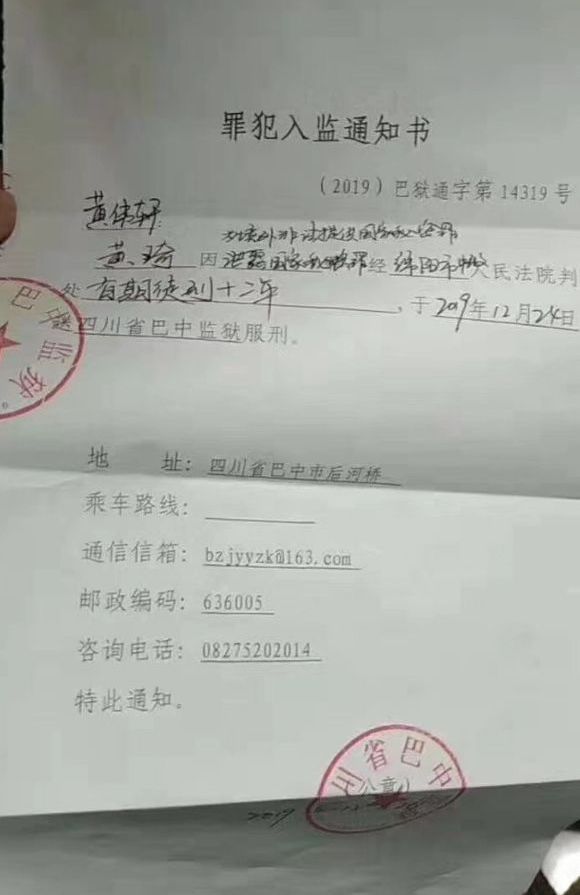 罪犯入监通知书
（2019）巴狱通字第 14319 号
黄伟轩:
为境外非法提供国家秘密罪
黄琦 因 泄露国家秘密罪 经 绵阳市中级人民法院判
处 有期徒刑十二年 ，于 2019年12月24日
送四川省巴中监狱服刑。
巴中监狱
地 址：四川省巴中市后河桥
乘车路线：
通信信箱：bzjyyzk@163.com
邮政编码：636005
咨询电话：08275202014
特此通知。
川省巴中
（公章）
2019